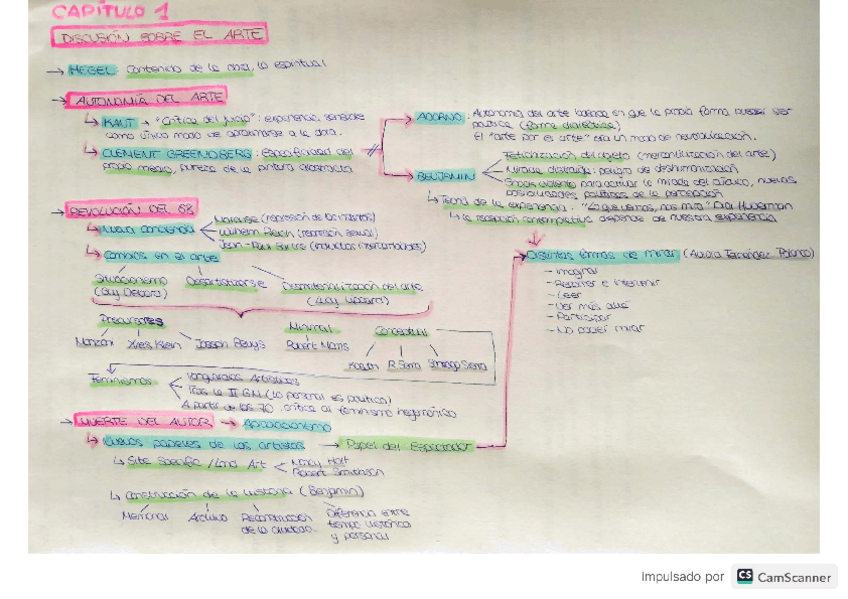 CAPÍTULO 1
DISCUSIÓN SOBRE EL ARTE
→ HEGEL Contenido de la idea, lo espiritual
→ AUTONOMÍA DEL ARTE
↳ KAUT → "Crítica del juicio": experiencia sensible
como único modo de aproximarse a la obra.
↳ CLEMENT GREENBERG: especificidad del
propio medio, pureza de la pintura abstracta
→ ADORNO: Autonomía del arte la propia forma puede ser
política (forma dialéctica)
El "arte por el arte" era un modo de neutralización.
→ BENJAMIN
Fetichización del objeto (mercantilización del arte)
Mirada distraída: peligro de deshumanización
Shock violento para activar la mirada del público, nuevas
posibilidades políticas de la percepción
↳ Teoría de la experiencia. "Lo que vemos, nos mira" Didi Huberman
↳ la recepción contemplativa depende de nuestra experiencia
→ REVOLUCIÓN DEL 68
↳ Nueva conciencia
Marcuse (represión de los instintos)
Wilhelm Reich (represión sexual)
Jean-Paul Sartre
↳ Cambios en el arte
Situacionismo
(Guy Debord)
Desartistizarse
Desmaterialización del arte
(Lucy Lippard)
Precursores
Manzoni
Yves Klein
Joseph Beuys
Minimal
Robert Morris
Conceptual
Kosuth
R. Serra
Santiago Sierra
Feminismos
Vanguardias Artísticas
Tras la II GM (Lo personal es político)
A partir de los 70. crítica al feminismo hegemónico
Distintas formas de mirar (Aurora Fernández Polanco)
- Imaginar
- Resistir e intervenir
- Leer
- Ver más allá
- Participar
- No poder mirar
→ MUERTE DEL AUTOR → Apropiacionismo
↳ Nuevos papeles de los artistas → Papel del Espectador
↳ Site Specific / Land Art
Nancy Holt
Robert Smithson
↳ Construcción de la historia (Benjamin)
Memoria
Archivo
Reconstrucción
de la ciudad
Diferencia entre
tiempo histórico
y personal
Impulsado por CS CamScanner